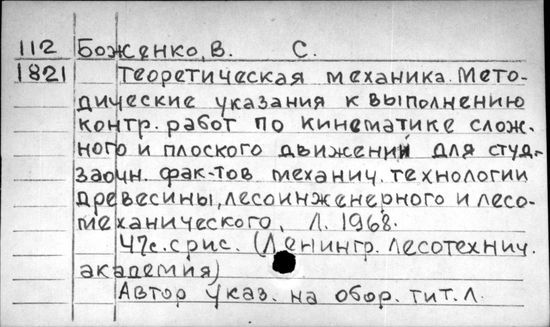 112 Боженко, В. С.
1821 Теоретическая механика. Мето-
дические указания к выполнению
контр. работ по кинематике слож-
ного и плоского движений для студ-
заочн. фак-тов механич. технологии
древесины, лесоинженерного и лесо-
механического, Л. 1968.
47с. с рис. (Ленингр. лесотехнич.
академия)
Автор указ. на обор. тит. л.